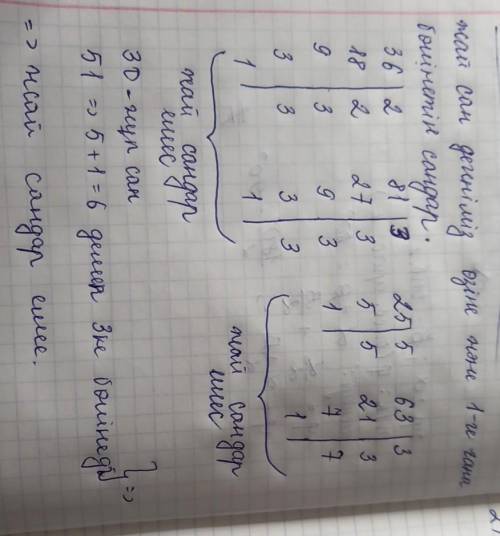 жай сан дегніміз өзіне және 1-ге ғана
бөлінетін сандар.
36 | 2
18 | 2
9 | 3
3 | 3
1
81 | 3
27 | 3
9 | 3
3 | 3
1
25 | 5
5 | 5
1
63 | 3
21 | 3
7 | 7
1
жай сандар
емес
жай сандар
емес
30 - жұп сан
51 => 5+1=6 демек 3ке бөлінеді } =>
=> жай сандар емес.